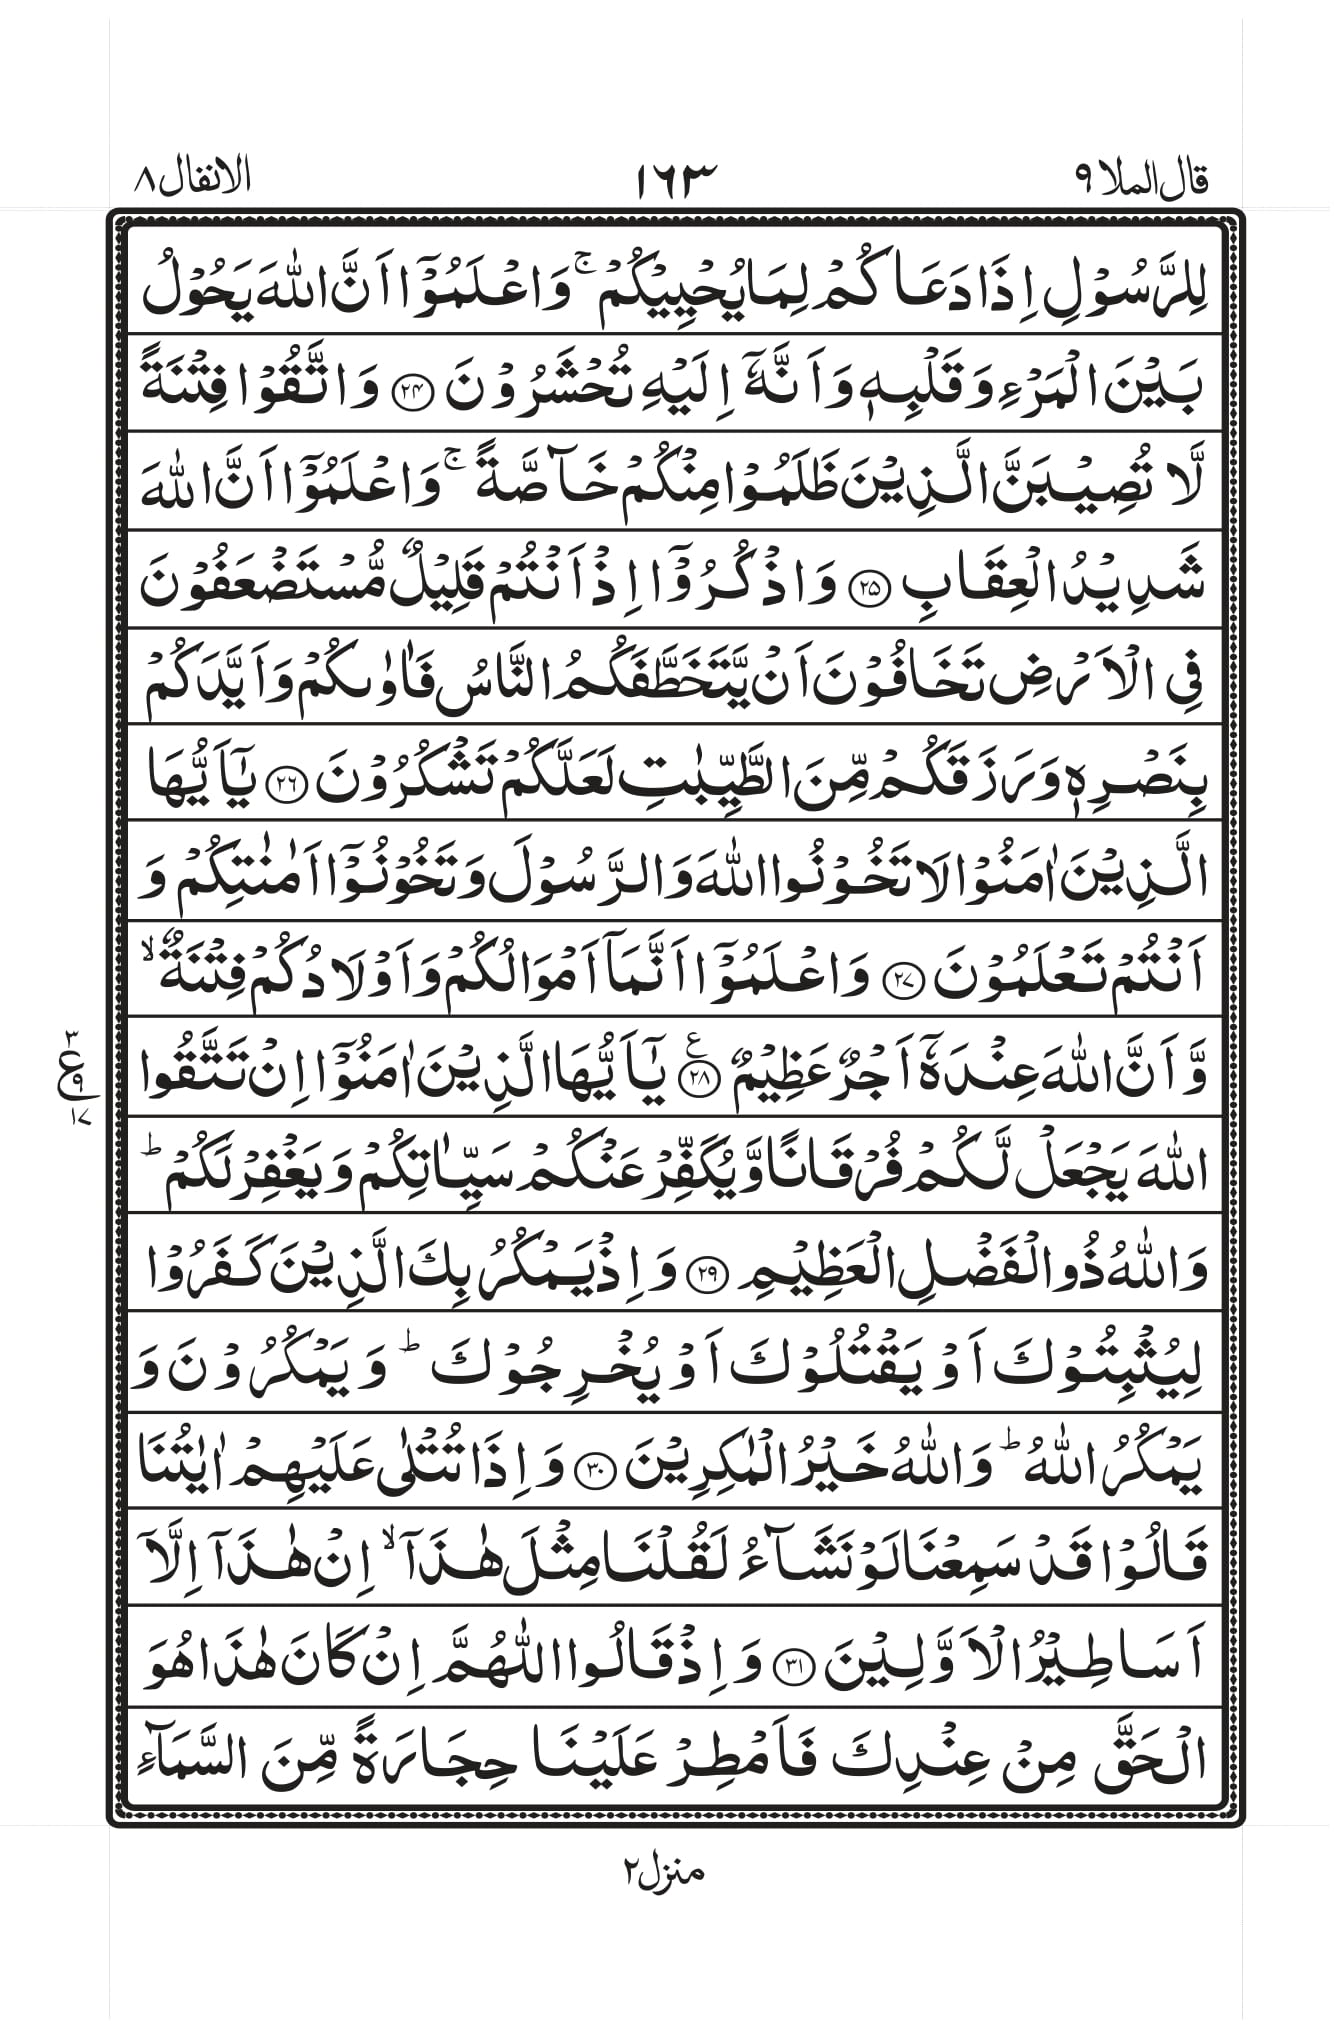 قال الملا ٩ ١٦٣ الانفال ٨
لِلرَّسُوۡلِ اِذَا دَعَاكُمۡ لِمَا يُحۡيِيۡكُمۡ‌ۚ وَاعۡلَمُوۡۤا اَنَّ اللّٰهَ يَحُوۡلُ
بَيۡنَ الۡمَرۡءِ وَقَلۡبِهٖ وَاَنَّهٗۤ اِلَيۡهِ تُحۡشَرُوۡنَ ﴿۲۴﴾ وَاتَّقُوۡا فِتۡنَةً
لَّا تُصِيۡبَنَّ الَّذِيۡنَ ظَلَمُوۡا مِنۡكُمۡ خَآصَّةً‌ ۚ وَاعۡلَمُوۡۤا اَنَّ اللّٰهَ
شَدِيۡدُ الۡعِقَابِ ﴿۲۵﴾ وَاذۡكُرُوۡۤا اِذۡ اَنۡتُمۡ قَلِيۡلٌ مُّسۡتَضۡعَفُوۡنَ
فِى الۡاَرۡضِ تَخَافُوۡنَ اَنۡ يَّتَخَطَّفَكُمُ النَّاسُ فَاٰوٰٮكُمۡ وَاَيَّدَكُمۡ
بِنَصۡرِهٖ وَرَزَقَكُمۡ مِّنَ الطَّيِّبٰتِ لَعَلَّكُمۡ تَشۡكُرُوۡنَ ﴿۲۶﴾ يٰۤاَيُّهَا
الَّذِيۡنَ اٰمَنُوۡا لَا تَخُوۡنُوا اللّٰهَ وَالرَّسُوۡلَ وَتَخُوۡنُوۡۤا اَمٰنٰتِكُمۡ وَ
اَنۡتُمۡ تَعۡلَمُوۡنَ ﴿۲۷﴾ وَاعۡلَمُوۡۤا اَنَّمَاۤ اَمۡوَالُكُمۡ وَاَوۡلَادُكُمۡ فِتۡنَةٌ  ۙ
وَّاَنَّ اللّٰهَ عِنۡدَهٗۤ اَجۡرٌ عَظِيۡمٌ ﴿۲۸﴾ ع يٰۤاَيُّهَا الَّذِيۡنَ اٰمَنُوۡۤا اِنۡ تَتَّقُوا ٣ ع ٩ ١٧
اللّٰهَ يَجۡعَلْ لَّكُمۡ فُرۡقَانًا وَّيُكَفِّرۡ عَنۡكُمۡ سَيِّاٰتِكُمۡ وَيَغۡفِرۡ لَكُمۡ‌ ؕ
وَاللّٰهُ ذُو الۡفَضۡلِ الۡعَظِيۡمِ ﴿۲۹﴾ وَاِذۡ يَمۡكُرُ بِكَ الَّذِيۡنَ كَفَرُوۡا
لِيُثۡبِتُوۡكَ اَوۡ يَقۡتُلُوۡكَ اَوۡ يُخۡرِجُوۡكَ‌ؕ وَيَمۡكُرُوۡنَ وَ
يَمۡكُرُ اللّٰهُ‌ؕ وَاللّٰهُ خَيۡرُ الۡمٰكِرِيۡنَ ﴿۳۰﴾ وَاِذَا تُتۡلٰى عَلَيۡهِمۡ اٰيٰتُنَا
قَالُوۡا قَدۡ سَمِعۡنَا لَوۡ نَشَآءُ لَقُلۡنَا مِثۡلَ هٰذَاۤ‌ ۙ اِنۡ هٰذَاۤ اِلَّاۤ
اَسَاطِيۡرُ الۡاَوَّلِيۡنَ ﴿۳۱﴾ وَاِذۡ قَالُوا اللّٰهُمَّ اِنۡ كَانَ هٰذَا هُوَ
الۡحَقَّ مِنۡ عِنۡدِكَ فَاَمۡطِرۡ عَلَيۡنَا حِجَارَةً مِّنَ السَّمَآءِ
منزل ٢